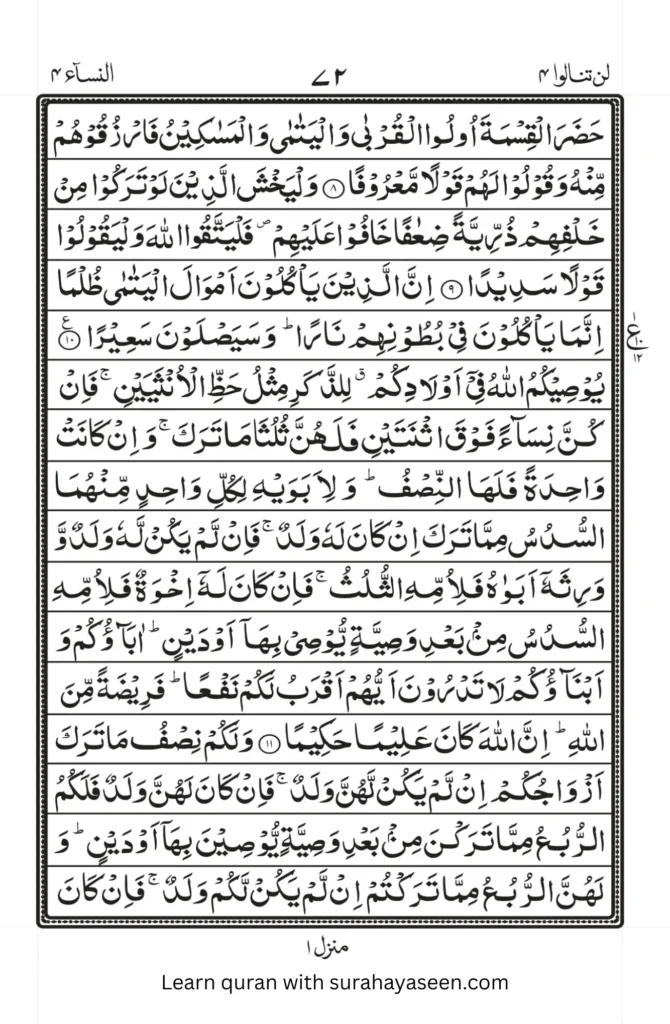 لن تنالوا ۴ ۷۲ النسآء ۴
حَضَرَ الْقِسْمَةَ اُولُوا الْقُرْبٰى وَالْيَتٰمٰى وَالْمَسٰكِيْنُ فَارْزُقُوْهُمْ
مِّنْهُ وَقُوْلُوْا لَهُمْ قَوْلًا مَّعْرُوْفًا ﴿۸﴾ وَلْيَخْشَ الَّذِيْنَ لَوْ تَرَكُوْا مِنْ
خَلْفِهِمْ ذُرِّيَّةً ضِعٰفًا خَافُوْا عَلَيْهِمْ ۪ فَلْيَتَّقُوا اللّٰهَ وَلْيَقُوْلُوْا
قَوْلًا سَدِيْدًا ﴿۹﴾ اِنَّ الَّذِيْنَ يَاْكُلُوْنَ اَمْوَالَ الْيَتٰمٰى ظُلْمًا
اِنَّمَا يَاْكُلُوْنَ فِيْ بُطُوْنِهِمْ نَارًا ؕ وَسَيَصْلَوْنَ سَعِيْرًا ﴿۱۰﴾ ع ۱۰ ۱۲
يُوْصِيْكُمُ اللّٰهُ فِيْۤ اَوْلَادِكُمْ ۗ لِلذَّكَرِ مِثْلُ حَظِّ الْاُنْثَيَيْنِ ۚ فَاِنْ
كُنَّ نِسَآءً فَوْقَ اثْنَتَيْنِ فَلَهُنَّ ثُلُثَا مَا تَرَكَ ۚ وَاِنْ كَانَتْ
وَاحِدَةً فَلَهَا النِّصْفُ ؕ وَلِاَبَوَيْهِ لِكُلِّ وَاحِدٍ مِّنْهُمَا
السُّدُسُ مِمَّا تَرَكَ اِنْ كَانَ لَهٗ وَلَدٌ ۚ فَاِنْ لَّمْ يَكُنْ لَّهٗ وَلَدٌ وَّ
وَرِثَهٗۤ اَبَوٰهُ فَلِاُمِّهِ الثُّلُثُ ۚ فَاِنْ كَانَ لَهٗۤ اِخْوَةٌ فَلِاُمِّهِ
السُّدُسُ مِنْۢ بَعْدِ وَصِيَّةٍ يُّوْصِيْ بِهَاۤ اَوْ دَيْنٍ ؕ اٰبَآؤُكُمْ وَ
اَبْنَآؤُكُمْ لَا تَدْرُوْنَ اَيُّهُمْ اَقْرَبُ لَكُمْ نَفْعًا ؕ فَرِيْضَةً مِّنَ
اللّٰهِ ؕ اِنَّ اللّٰهَ كَانَ عَلِيْمًا حَكِيْمًا ﴿۱۱﴾ وَلَكُمْ نِصْفُ مَا تَرَكَ
اَزْوَاجُكُمْ اِنْ لَّمْ يَكُنْ لَّهُنَّ وَلَدٌ ۚ فَاِنْ كَانَ لَهُنَّ وَلَدٌ فَلَكُمُ
الرُّبُعُ مِمَّا تَرَكْنَ مِنْۢ بَعْدِ وَصِيَّةٍ يُّوْصِيْنَ بِهَاۤ اَوْ دَيْنٍ ؕ وَ
لَهُنَّ الرُّبُعُ مِمَّا تَرَكْتُمْ اِنْ لَّمْ يَكُنْ لَّكُمْ وَلَدٌ ۚ فَاِنْ كَانَ
منزل ۱
Learn quran with surahayaseen.com